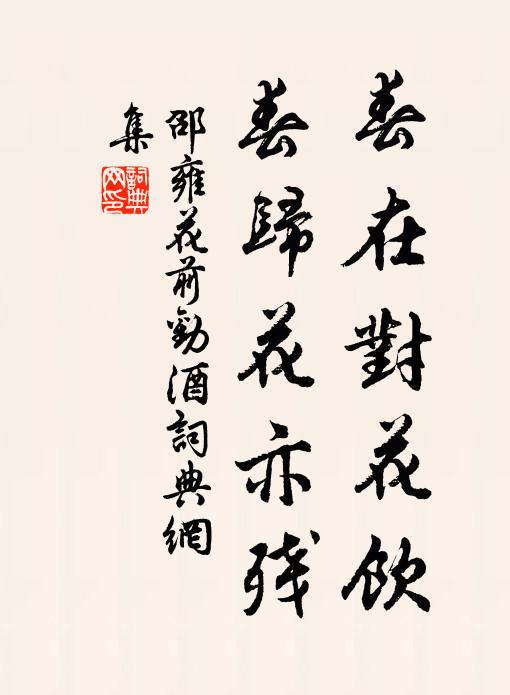 春在對花飲
春歸花亦殘
邵雍花前勸酒詞典網
集
詞典
網印